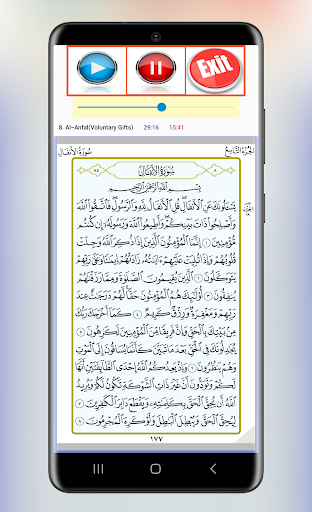 Exit
8. Al-Anfal(Voluntary Gifts) 29:16 15:41
الجُزءُ التَّاسِعُ سُورَةُ الأَنفَالِ
٨ سُورَةُ الأَنفَالِ ٧٥
بِسْمِ ٱللَّهِ ٱلرَّحْمَٰنِ ٱلرَّحِيمِ
يَسْـَٔلُونَكَ عَنِ ٱلْأَنفَالِ قُلِ ٱلْأَنفَالُ لِلَّهِ وَٱلرَّسُولِ فَٱتَّقُوا۟ ٱللَّهَ
وَأَصْلِحُوا۟ ذَاتَ بَيْنِكُمْ وَأَطِيعُوا۟ ٱللَّهَ وَرَسُولَهُۥٓ إِن كُنتُم
مُّؤْمِنِينَ ١ إِنَّمَا ٱلْمُؤْمِنُونَ ٱلَّذِينَ إِذَا ذُكِرَ ٱللَّهُ وَجِلَتْ
قُلُوبُهُمْ وَإِذَا تُلِيَتْ عَلَيْهِمْ ءَايَٰتُهُۥ زَادَتْهُمْ إِيمَٰنًا وَعَلَىٰ رَبِّهِمْ
يَتَوَكَّلُونَ ٢ ٱلَّذِينَ يُقِيمُونَ ٱلصَّلَوٰةَ وَمِمَّا رَزَقْنَٰهُمْ
يُنفِقُونَ ٣ أُو۟لَٰٓئِكَ هُمُ ٱلْمُؤْمِنُونَ حَقًّا لَّهُمْ دَرَجَٰتٌ عِندَ
رَبِّهِمْ وَمَغْفِرَةٌ وَرِزْقٌ كَرِيمٌ ٤ كَمَآ أَخْرَجَكَ رَبُّكَ
مِنۢ بَيْتِكَ بِٱلْحَقِّ وَإِنَّ فَرِيقًا مِّنَ ٱلْمُؤْمِنِينَ لَكَٰرِهُونَ ٥
يُجَٰدِلُونَكَ فِى ٱلْحَقِّ بَعْدَ مَا تَبَيَّنَ كَأَنَّمَا يُسَاقُونَ إِلَى ٱلْمَوْتِ
وَهُمْ يَنظُرُونَ ٦ وَإِذْ يَعِدُكُمُ ٱللَّهُ إِحْدَى ٱلطَّآئِفَتَيْنِ أَنَّهَا
لَكُمْ وَتَوَدُّونَ أَنَّ غَيْرَ ذَاتِ ٱلشَّوْكَةِ تَكُونُ لَكُمْ وَيُرِيدُ
ٱللَّهُ أَن يُحِقَّ ٱلْحَقَّ بِكَلِمَٰتِهِۦ وَيَقْطَعَ دَابِرَ ٱلْكَٰفِرِينَ ٧
لِيُحِقَّ ٱلْحَقَّ وَيُبْطِلَ ٱلْبَٰطِلَ وَلَوْ كَرِهَ ٱلْمُجْرِمُونَ ٨
١٧٧